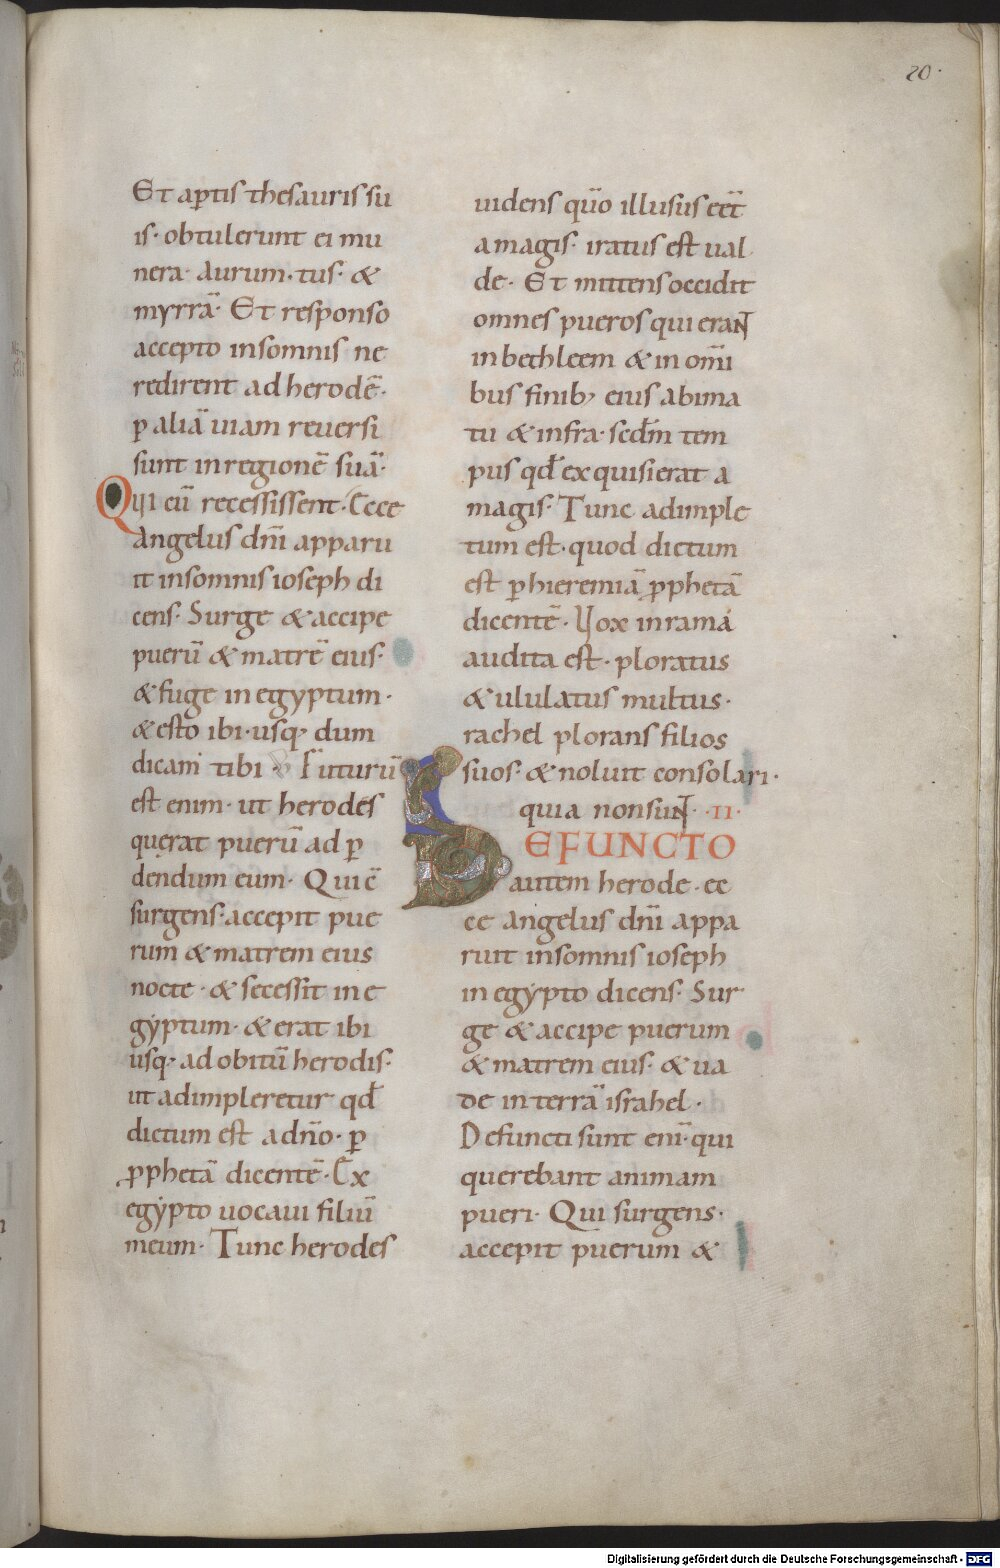 20.
Et aꝑtis thesauris su
is· obtulerunt ei mu
nera· Aurum· tus· &
myrrā· Et responso
accepto in somnis ne
redirent ad herodē·
ꝑ aliā uiam reuersi
sunt in regionē suā·
Qui cū recessissent· Ecce
angelus dn̄i apparu
it in somnis ioseph di
cens· Surge & accipe
puerū & matrē eius·
& fuge in egyptum·
& esto ibi· usq; dum
dicam tibi· Futurū
est enim· ut herodes
quęrat puerū ad ꝑ
dendum eum· Qui c̄
surgens· accepit pue
rum & matrem eius
nocte· & secessit in e
gẏptum· & erat ibi
usq; ad obitū herodis·
ut adimpleretur qd̄
dictum est a dn̄o· ꝑ
ꝓphetā dicentē· Ex
egẏpto uocaui filiū
meum· Tunc herodes
uidens qūo illusus eēt
a magis· iratus est ual
de· Et mittens occidit
omnes pueros qui erant
in bethleem & in om̄i
bus finib; eius a bima
tu & infra· scdm̄ tem
pus qd̄ exquisierat a
magis· Tunc adimple
tum est· quod dictum
est ꝑ hieremiā ꝓphetā
dicentē· Vox in rama
audita est· ploratus
& ululatus multus·
rachel plorans filios
suos· & noluit consolari·
quia non sunt· II·
DEFUNCTO
autem herode· ec
ce angelus dn̄i appa
ruit in somnis ioseph
in egẏpto dicens· Sur
ge & accipe puerum
& matrem eius· & ua
de in terrā israhel·
Defuncti sunt eni̅· qui
querebant animam
pueri· Qui surgens·
accepit puerum &
Digitalisierung gefördert durch die Deutsche Forschungsgemeinschaft - DFG